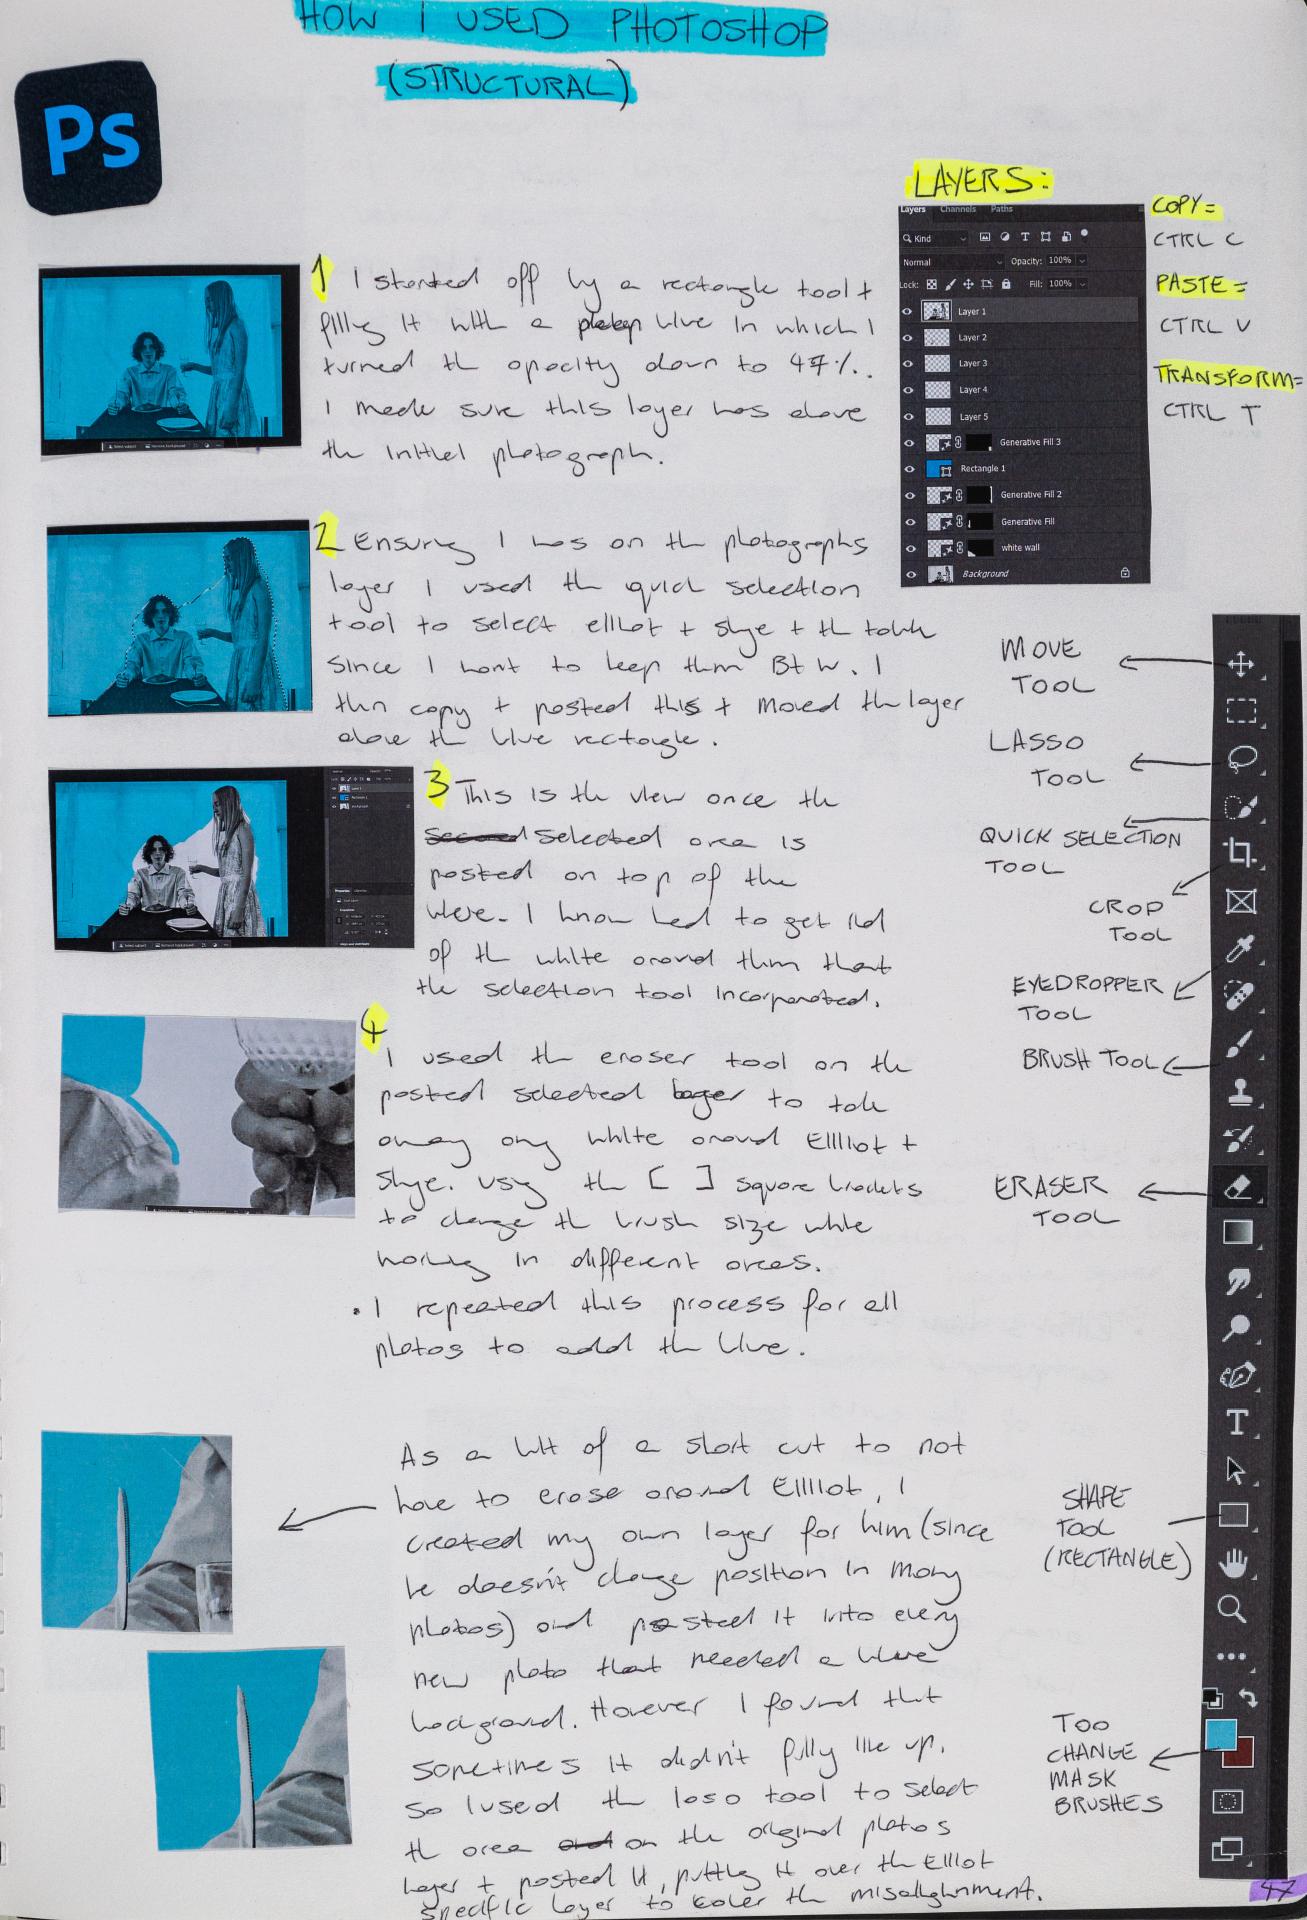 HOW I USED PHOTOSHOP
(STRUCTURAL)
Ps
1 I started off by a rectangle tool +
filling it with a blue in which I
turned the opacity down to 47%.
I made sure this layer was above
the initial photograph.
2 Ensuring I was on the photographs
layer I used the quick selection
tool to select elliot + skye + the table
since I want to keep them B+W. I
then copy + pasted this + moved the layer
above the blue rectangle.
3 This is the view once the
selected area is
pasted on top of the
blue. I know had to get rid
of the white around them that
the selection tool incorporated.
4
I used the eraser tool on the
pasted selected layer to take
away any white around Elliot +
skye. Using the [ ] square brackets
to change the brush size while
working in different areas.
• I repeated this process for all
photos to add the blue.
As a bit of a short cut to not
have to erase around Elliot, I
created my own layer for him (since
he doesn't change position in many
photos) and pasted it into every
new photo that needed a blue
background. However I found that
sometimes it didn't fully line up,
so I used the laso tool to select
the area on the original photos
layer + pasted it, putting it over the Elliot
specific layer to cover the misalignment.
LAYERS:
Layers Channels Paths
Kind
Normal Opacity: 100%
Lock: Fill: 100%
Layer 1
Layer 2
Layer 3
Layer 4
Layer 5
Generative Fill 3
Rectangle 1
Generative Fill 2
Generative Fill
white wall
Background
COPY=
CTRL C
PASTE=
CTRL V
TRANSFORM=
CTRL T
MOVE
TOOL
LASSO
TOOL
QUICK SELECTION
TOOL
CROP
TOOL
EYEDROPPER
TOOL
BRUSH TOOL
ERASER
TOOL
SHAPE
TOOL
(RECTANGLE)
TOO
CHANGE
MASK
BRUSHES
47